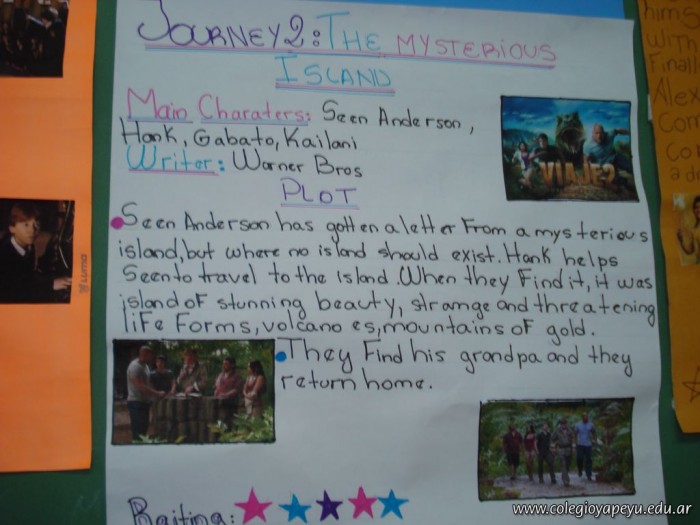 JOURNEY 2: THE MYSTERIOUS
ISLAND
Main Charaters: Seen Anderson,
Hank, Gabato, Kailani
Writer: Warner Bros
PLOT
Seen Anderson has gotten a letter From a mysterious
island, but where no island should exist. Hank helps
Seen to travel to the island. When they Find it, it was
island of stunning beauty, strange and threatening
liFe Forms, volcano es, mountains of gold.
They Find his grandpa and they
return home.
Raiting:
VIAJE 2
him
with
Finall
Alex
Com
Co
www.colegioyapeyu.edu.ar